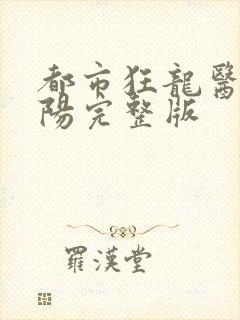 都市狂龍醫
陽完整版
羅漢堂